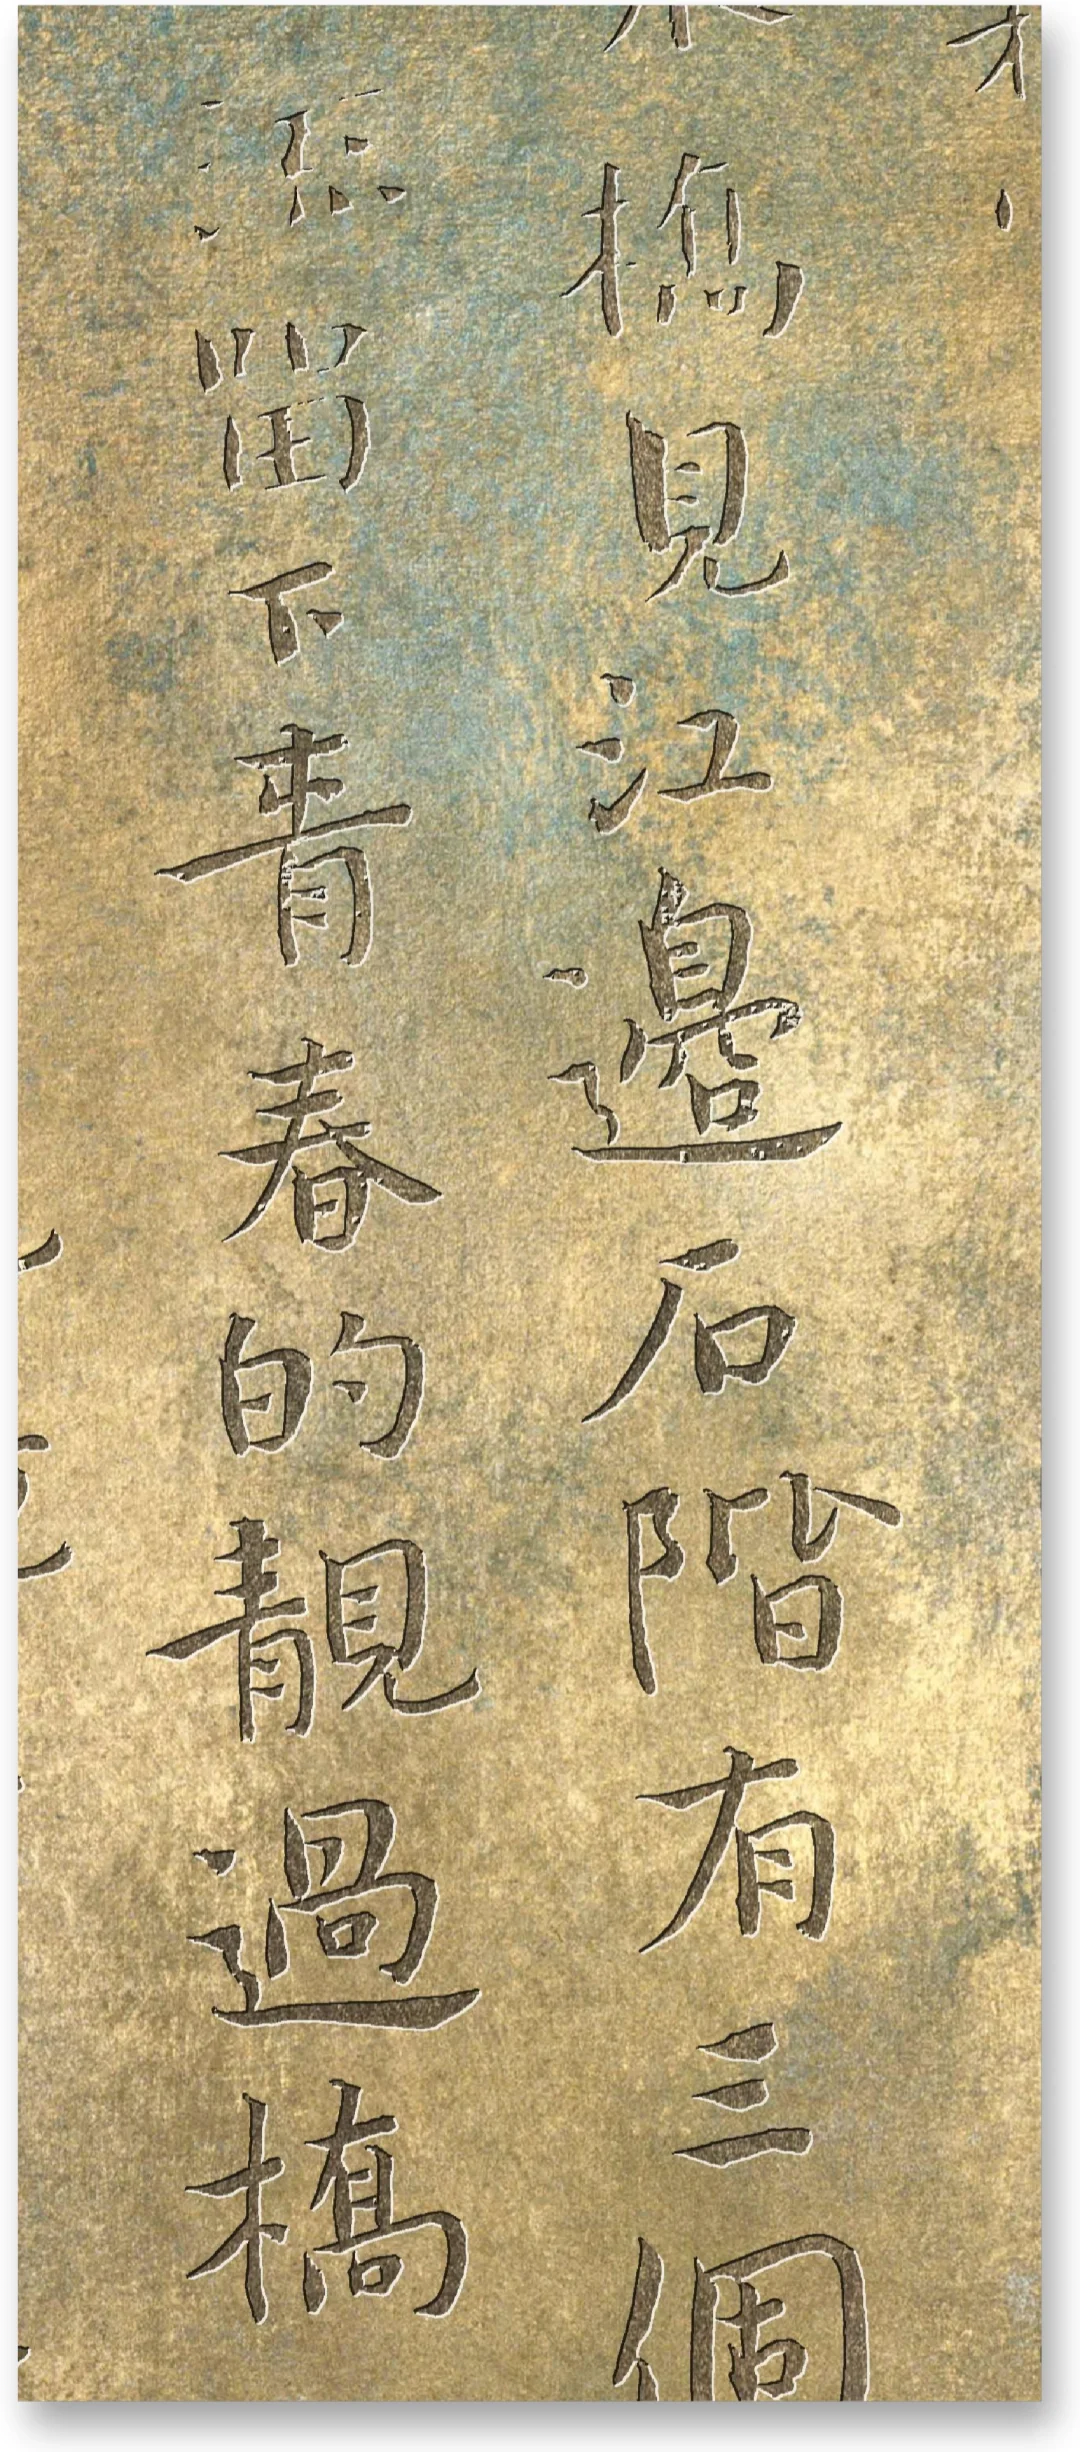 橋見江邊石階有三個
留下青春的靚過橋